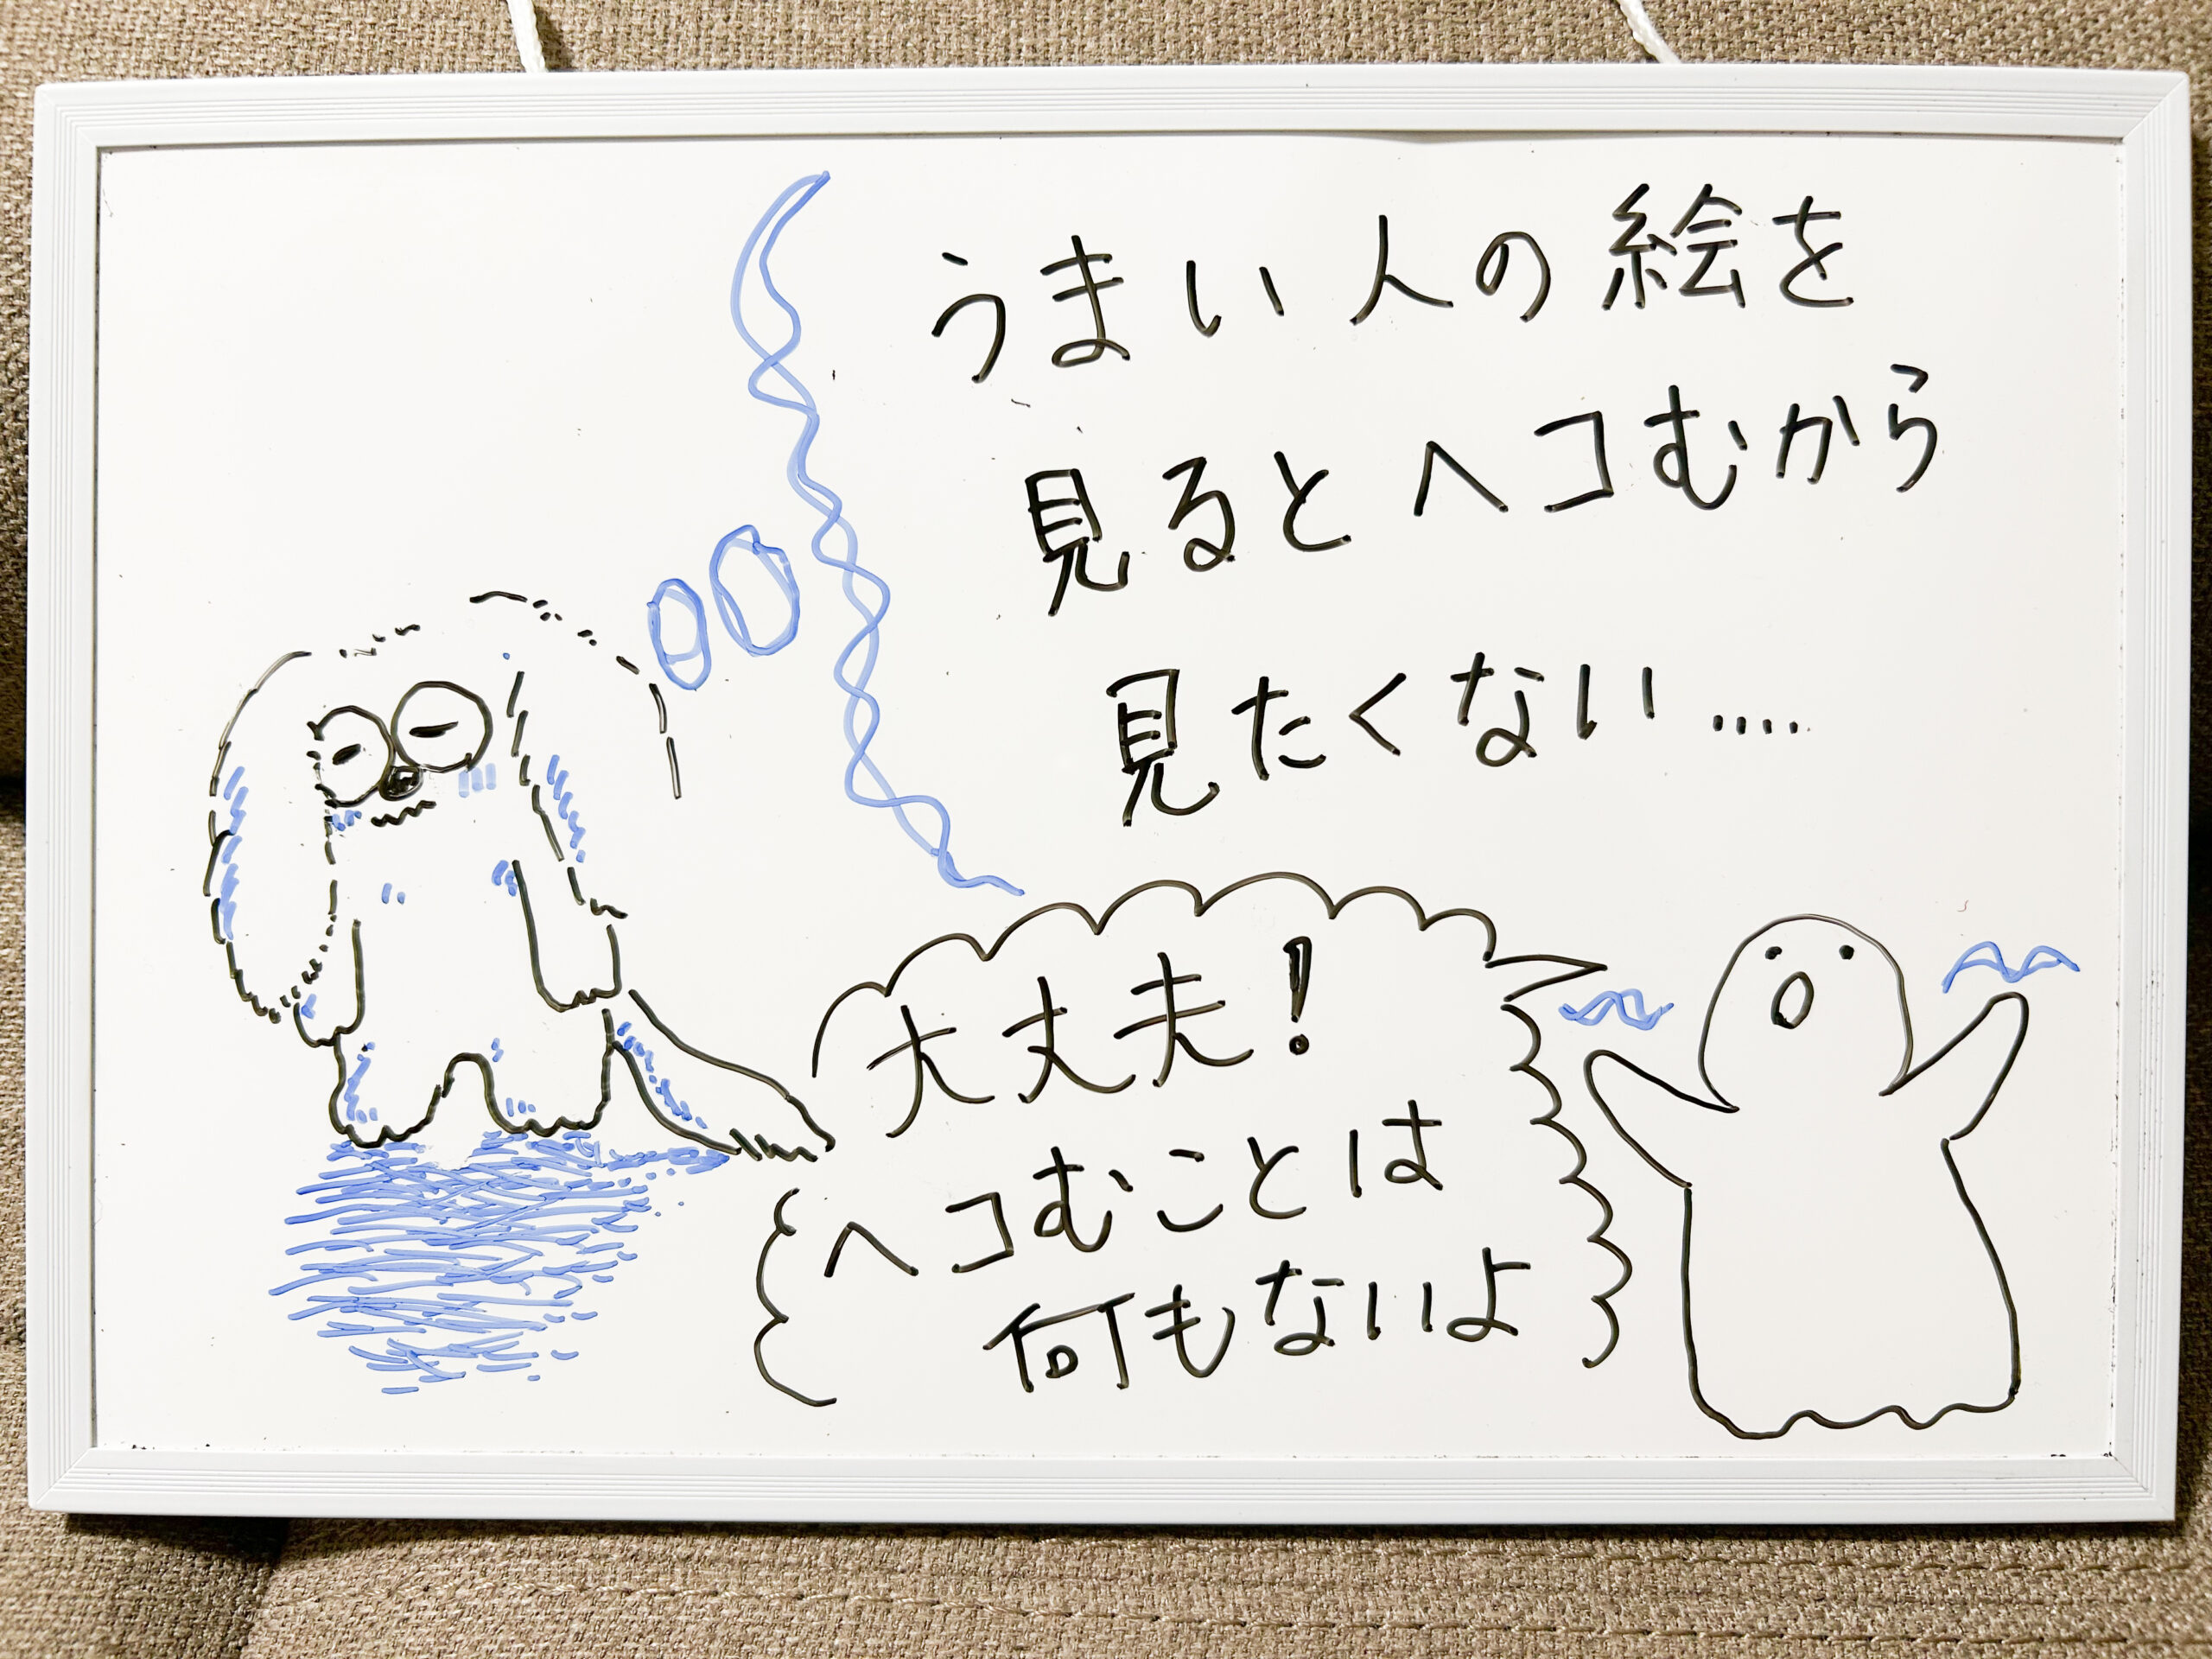 うまい人の絵を
見るとヘコむから
見たくない....
大丈夫!
ヘコむことは
何もないよ